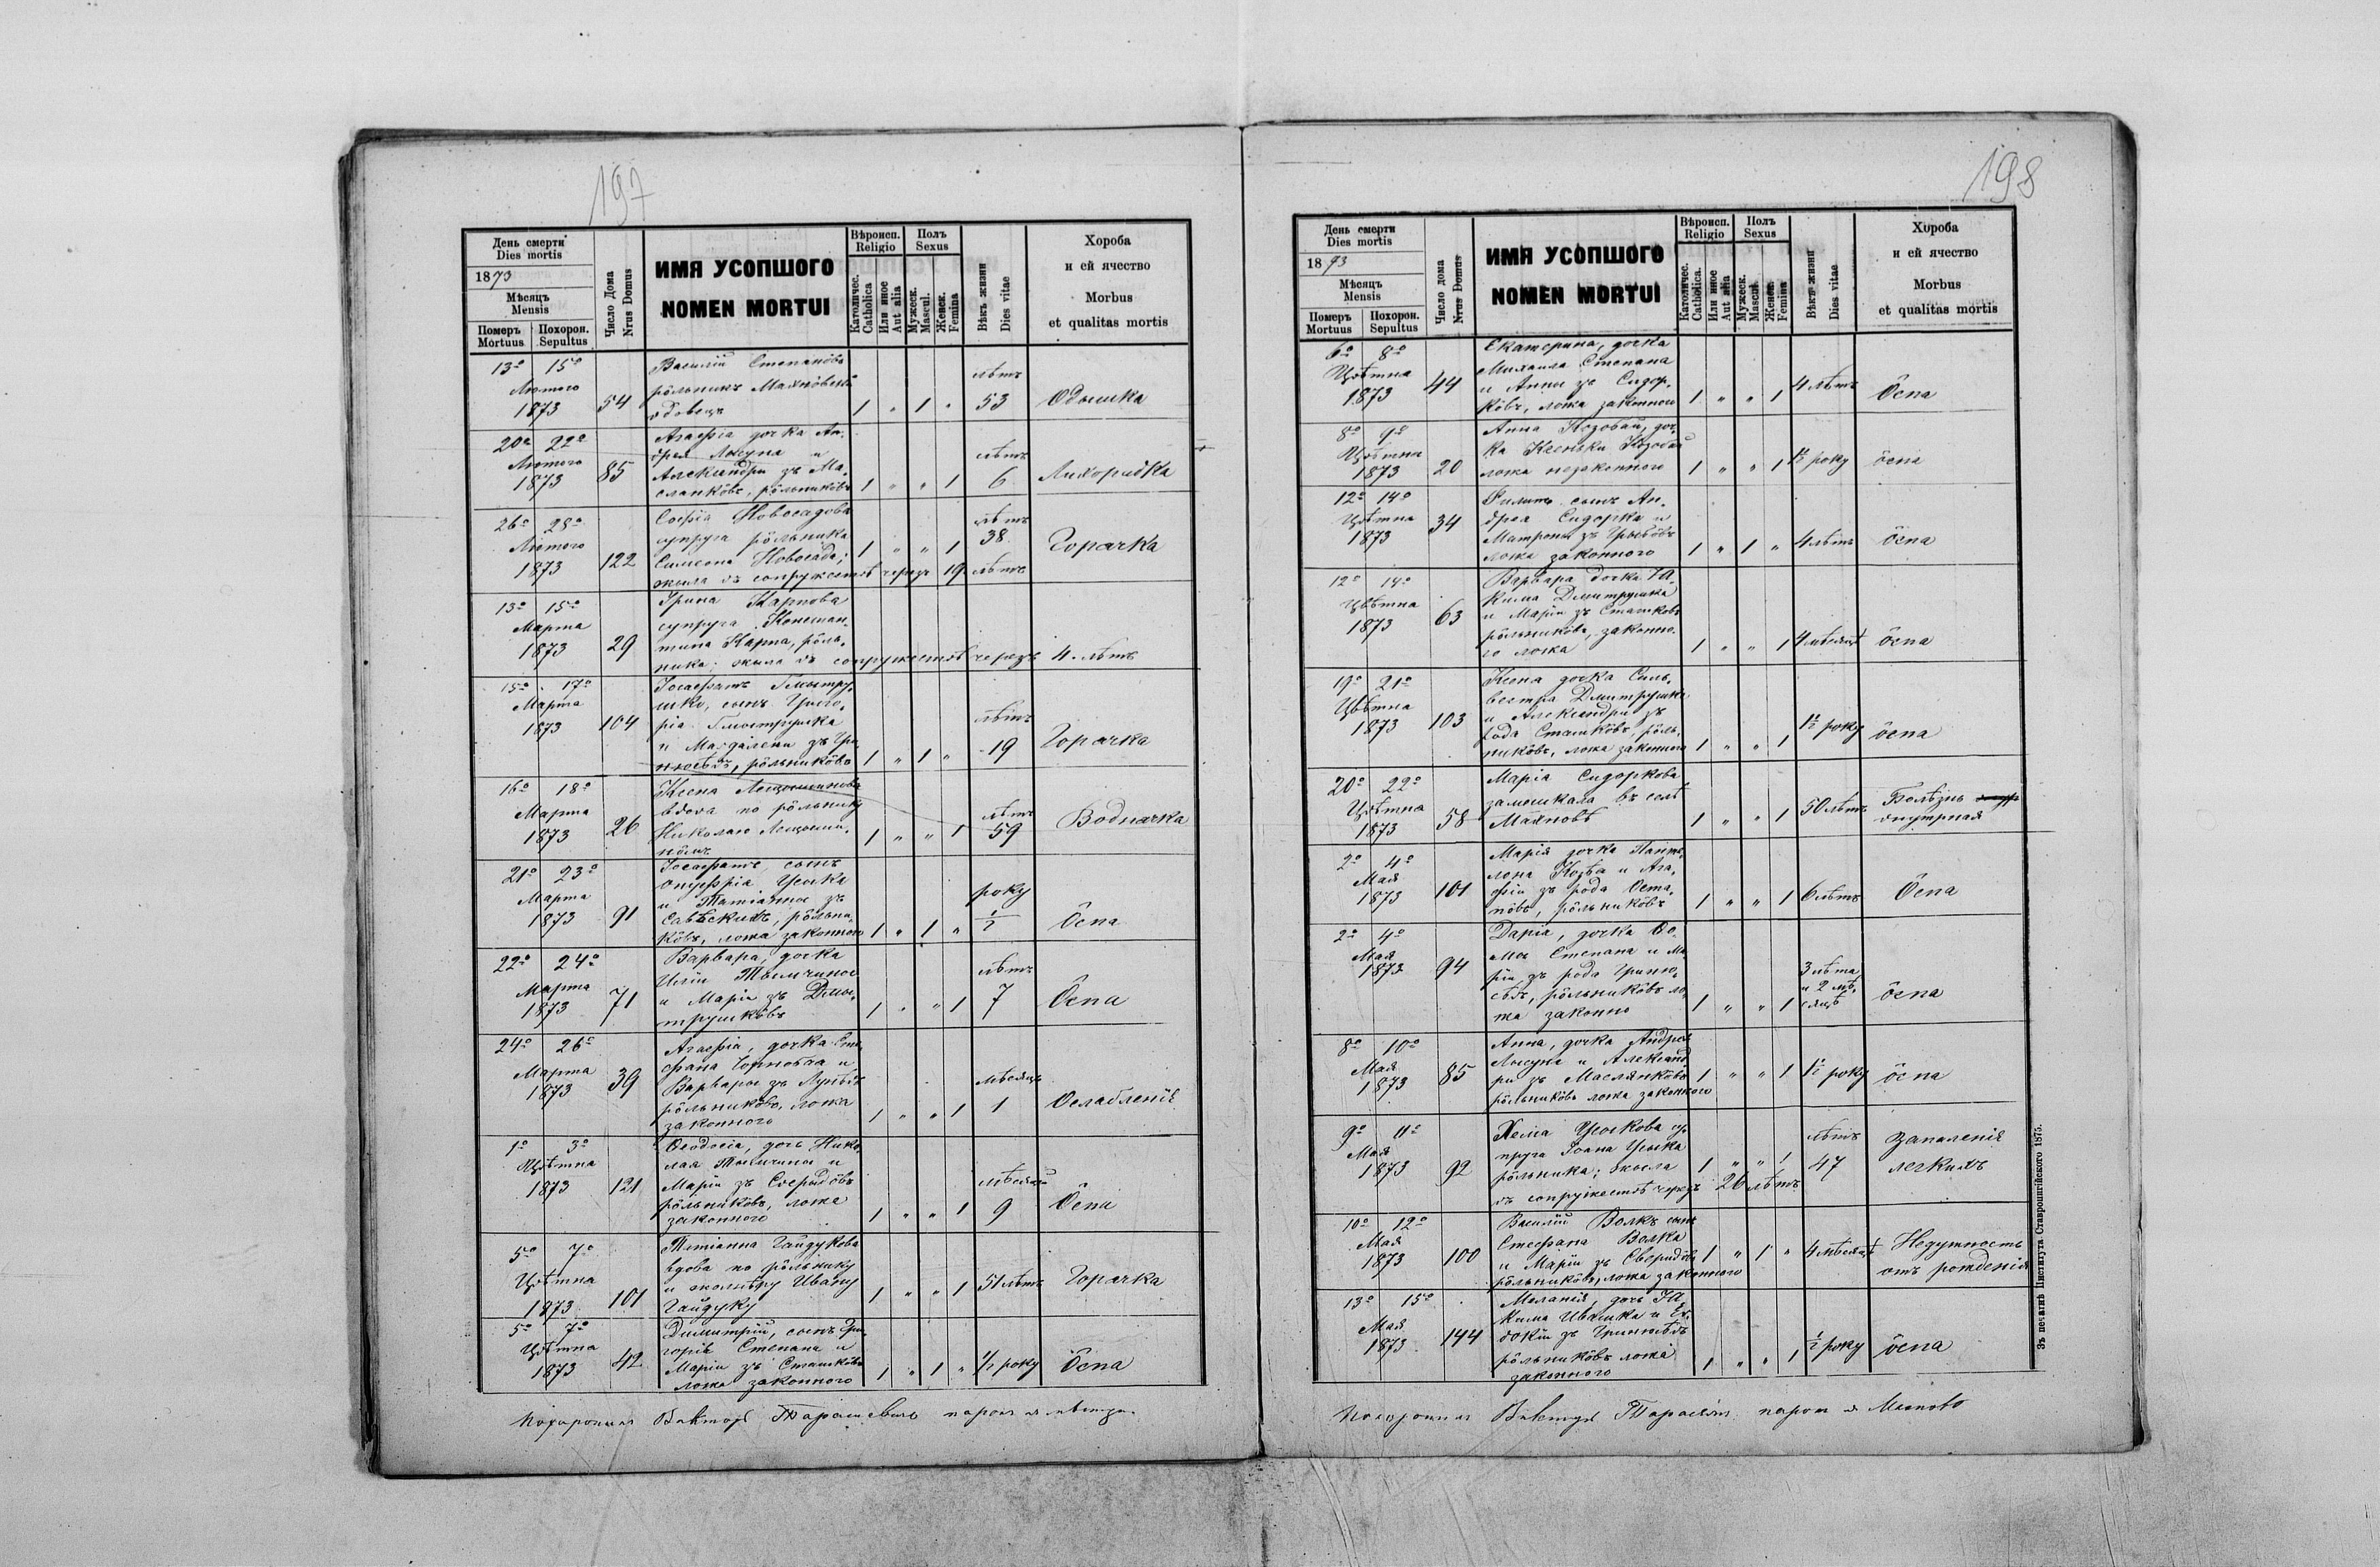 197
День смерти
Dies mortis
1873
Мѣсяцъ
Mensis
Померъ Похорон.
Mortuus Sepultus
Число Дома
Nrus Domus
ИМЯ УСОПШОГО
NOMEN MORTUI
Вѣроисп.
Religio
Католичес.
Catholica
Или иное
Aut alia
Полъ
Sexus
Мужеск.
Mascul.
Женск.
Femina
Вѣкъ жизни
Dies vitae
Хороба
и ей ячество
Morbus
et qualitas mortis
13º 15º
Лютого
1873
54
Василій Степановъ
рôльникъ
вдовецъ
1 " 1 "
лѣтъ
53
Одышка
20º 22º
Лютого
1873
85
Агафія дочка Ан-
дрея и
Александри зъ Ма-
слянкôвъ, рôльникôвъ
1 " " 1
лѣтъ
6
26º 28º
Лютого
1873
122
Софія Новосадова
супруга рôльника
Симеона Новосада;
жила въ сопружествѣ черезъ 19 лѣтъ
1 " " 1
лѣтъ
38
Горячка
13º 15º
Марта
1873
29
Ірина Карпова
супруга Констан-
тина Карпа, рôль-
ника; жила въ сопружествѣ черезъ 4 лѣтъ
15º 17º
Марта
1873
104
Іосафатъ
сынъ Григо-
рія
и Магдалени зъ Гри-
рôльникôвъ
1 " 1 "
лѣтъ
19
Горячка
16º 18º
Марта
1873
26
Ксена
вдова по рôльнику
Николаю
1 " " 1
лѣтъ
59
Воднячка
21º 23º
Марта
1873
91
Іосафатъ, сынъ
Онуфрія Уська
и Татіанны зъ
рôльни-
кôвъ, ложа законного
1 " 1 "
року
½
Ôспа
22º 24º
Марта
1873
71
Варвара, дочка
Иліи
и Маріи зъ Дми-
трушкôвъ
1 " " 1
лѣтъ
7
Ôспа
24º 26º
Марта
1873
39
Агафія, дочка Сте-
фана и
Варвары зъ
рôльникôвъ, ложа
законного
1 " " 1
мѣсяць
1
Ослабленіе
1º 3º
Цвѣтна
1873
121
Феодосія, дочь Нико-
лая и
Маріи зъ Сверыдôвъ
рôльникôвъ, ложа
законного
1 " " 1
мѣсяцѣй
9
Ôспа
5º 7º
Цвѣтна
1873
101
Татіанна Гайдукова
вдова по рôльнику
и Ивану
Гайдуку
1 " " 1
51 лѣтъ
Горячка
5º 7º
Цвѣтна
1873
42
Димитрій, сынъ Гри-
горія Степана и
Маріи зъ Сташкôвъ
ложа законного
1 " 1 "
½ року
Ôспа
198
День смерти
Dies mortis
1873
Мѣсяцъ
Mensis
Померъ Похорон.
Mortuus Sepultus
Число дома
Nrus Domus
ИМЯ УСОПШОГО
NOMEN MORTUI
Вѣроисп.
Religio
Католичес.
Catholica.
Или иное
Aut alia
Полъ
Sexus
Мужеск.
Mascul.
Женск.
Femina
Вѣкъ жизни
Dies vitae
Хороба
и ей ячество
Morbus
et qualitas mortis
6º 8º
Цвѣтна
1873
44
Екатерина, дочка
Михаила Степана
и Анны зъ Сидор-
кôвъ, ложа законного
1 " " 1
4 лѣтъ
Ôспа
8º 9º
Цвѣтна
1873
20
Анна Козовай, доч-
ка Ксеньки Козовай
ложа незаконного
1 " " 1
1½ року
ôспа
12º 14º
Цвѣтна
1873
34
Филипъ сынъ Ан-
дрея Сидорка и
Матроны зъ
ложа законного
1 " 1 "
4 лѣтъ
ôспа
12º 14º
Цвѣтна
1873
63
Варвара дочка Іа-
кима Дмитрушка
и Маріи зъ Сташковъ
рôльникôвъ, законно-
го ложа
1 " " 1
4 мѣсяцѣ
ôспа
19º 21º
Цвѣтна
1873
103
Ксена дочка Силь-
вестра Дмитрушка
и Александри зъ
рода Сташкôвъ, рôль-
никôвъ, ложа законного
1 " " 1
1½ року
ôспа
20º 22º
Цвѣтна
1873
58
Марія Сидоркова
замешкала въ селѣ
Маяновѣ
1 " " 1
50 лѣтъ
Болѣзнь
внутрная
2º 4º
Мая
1873
101
Марія дочка Панте-
лона и Ага-
фіи зъ рода Оста-
пôвъ, рôльникôвъ
1 " " 1
6 лѣтъ
Ôспа
2º 4º
Мая
1873
94
Дарія, дочка Фо-
мы Степана и Ма-
ріи зъ рода Гриню-
рôльникôвъ ло-
жа законно
1 " " 1
3 лѣта
и 2 мѣ-
сяцѣ
ôспа
8º 10º
Мая
1873
85
Анна, дочка Андрея
и Александ-
ри зъ Маслянкôвъ
рôльникôвъ ложа законного
1 " " 1
1½ року
ôспа
9º 11º
Мая
1873
92
Уськова су-
пруга Іоана Уська
рôльника; жила
въ сопружествѣ черезъ 26 лѣтъ
1 " " 1
лѣтъ
47
запаленія
легкихъ
10º 12º
Мая
1873
100
Василій Волкъ сынъ
Стефана Волка
и Маріи зъ Сверидôвъ
рôльникôвъ, ложа законного
1 " 1 "
4 мѣсяцѣ
Недужность
отъ рожденія
13º 15º
Мая
1873
144
Меланія, дочь Іа-
кима Ивашка и Ев-
докіи зъ
рôльникôвъ ложа
законного
1 " " 1
½ року
ôспа
Зъ печатнѣ Института Ставропигійского 1875.